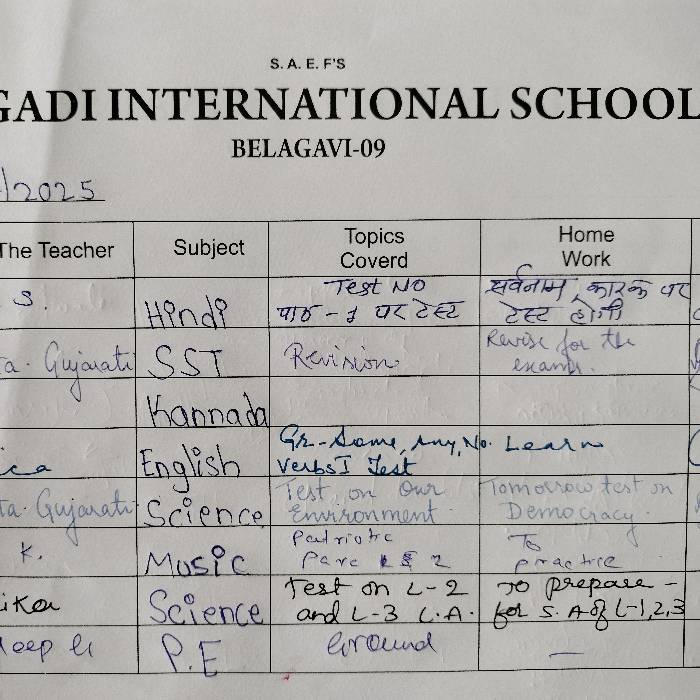 S. A. E. F'S
GADI INTERNATIONAL SCHOOL
BELAGAVI-09
/2025
The Teacher Subject Topics Coverd Home Work
S. Hindi Test NO सर्वनाम, कारक पर
पाठ - १ पर टेस्ट टेस्ट होगी
ta. Gujarati SST Revision Revise for the
exams.
Kannada
Gr-Some, Any, No. Learn
ica English Verbs I Test
ta. Gujarati Science Test on Our Tomorrow test on
Environment. Democracy.
K. Music Patriotic To
2 practice
ika Science Test on L-2 To prepare -
and L-3 L.A. for S.A of L-1,2,3
deep G P.E Ground —